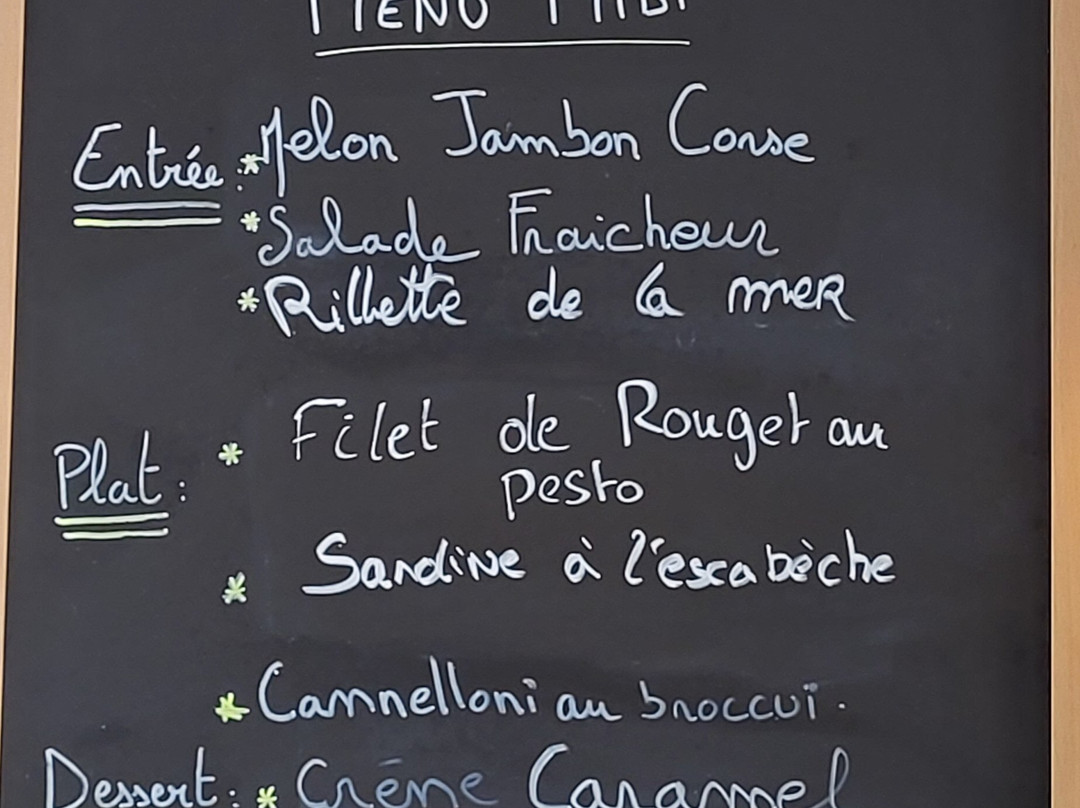 MENU MIDI
Entrée : * Melon Jambon Corse
* Salade Fraicheur
* Rillette de la mer
Plat : * Filet de Rouget au
pesto
* Sardine à l'escabèche
* Cannelloni au broccui.
Dessert : * Crème Caramel